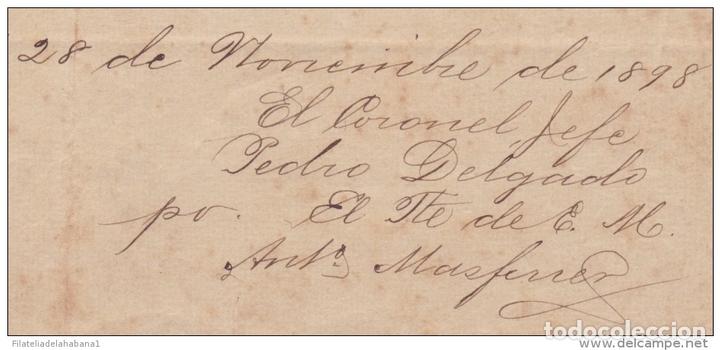 28 de Noviembre de 1898
El Coronel Jefe
Pedro Delgado
po. El Tte de E. M.
Anto. Masferrer
todocoleccion
Filateliadelahabana1
todocoleccion.net